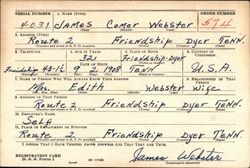 SERIAL NUMBER 1. NAME (Print) ORDER NUMBER
4031 James Comer Webster 574
2. ADDRESS (Print)
Route 2 Friendship Dyer Tenn.
3. TELEPHONE 4. AGE IN YEARS 5. PLACE OF BIRTH 6. COUNTRY OF CITIZENSHIP
32 Friendship-Dyer
DATE OF BIRTH
1908 Tenn U.S.A.
7. NAME OF PERSON WHO WILL ALWAYS KNOW YOUR ADDRESS 8. RELATIONSHIP OF THAT PERSON
Mrs. Edith Webster Wife
9. ADDRESS OF THAT PERSON
Route 2 Friendship Dyer Tenn.
10. EMPLOYER'S NAME
Self
11. PLACE OF EMPLOYMENT OR BUSINESS
Route 2 Friendship Dyer Tenn.
I AFFIRM THAT I HAVE VERIFIED ABOVE ANSWERS AND THAT THEY ARE TRUE.
REGISTRATION CARD
James Webster